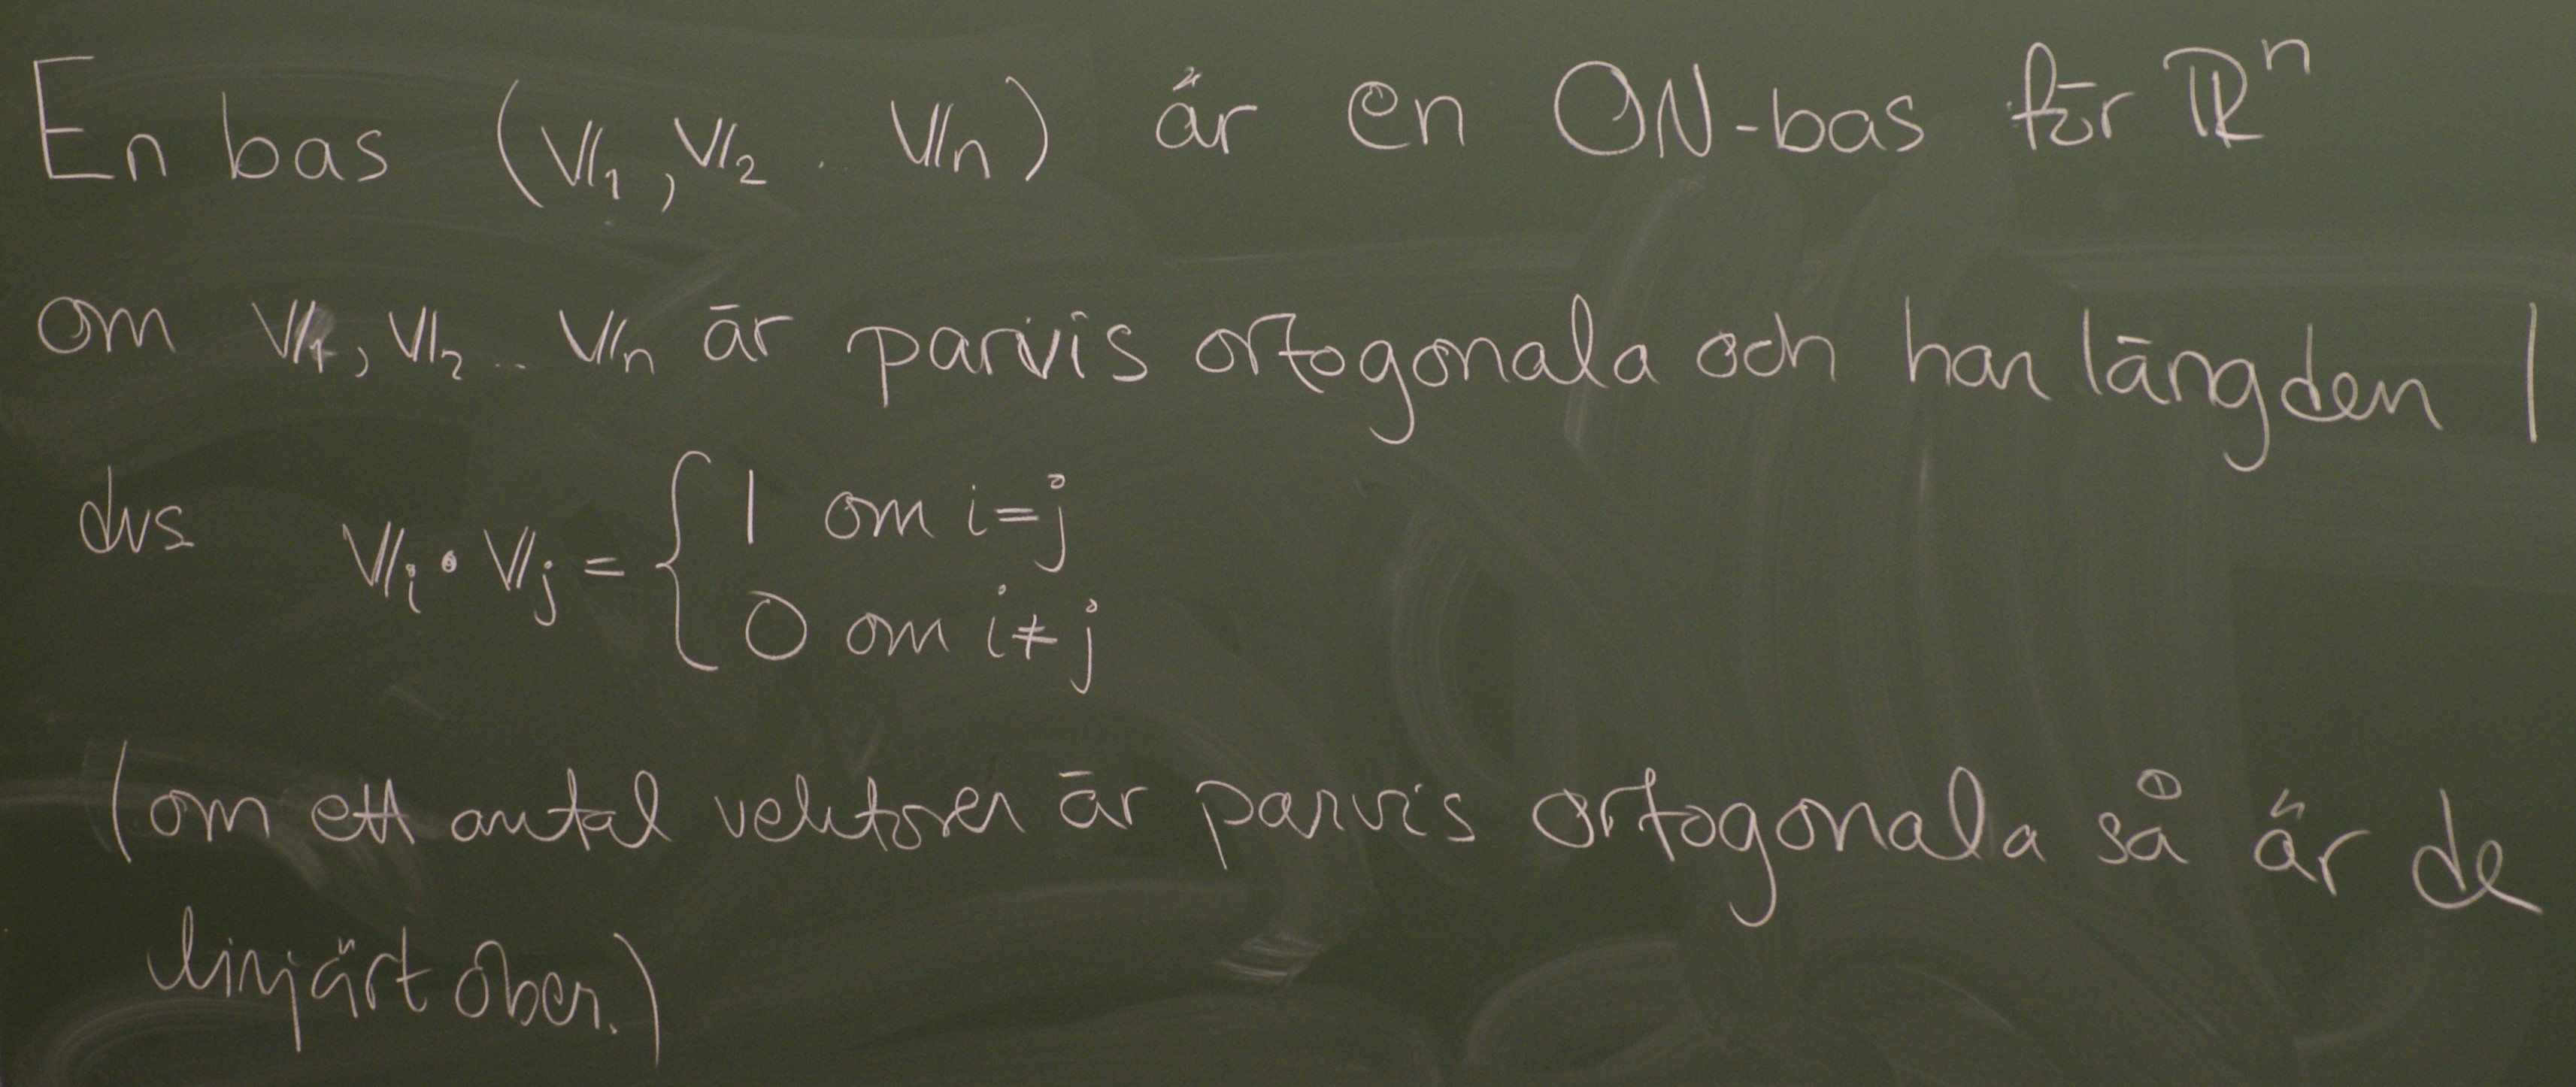 En bas (𝕍₁, 𝕍₂ .. 𝕍ₙ) är en ON-bas för ℝⁿ
om 𝕍₁, 𝕍₂ .. 𝕍ₙ är parvis ortogonala och har längden 1
dvs 𝕍ᵢ • 𝕍ⱼ = { 1 om i=j
0 om i≠j
(om ett antal vektorer är parvis ortogonala så är de
linjärt ober.)